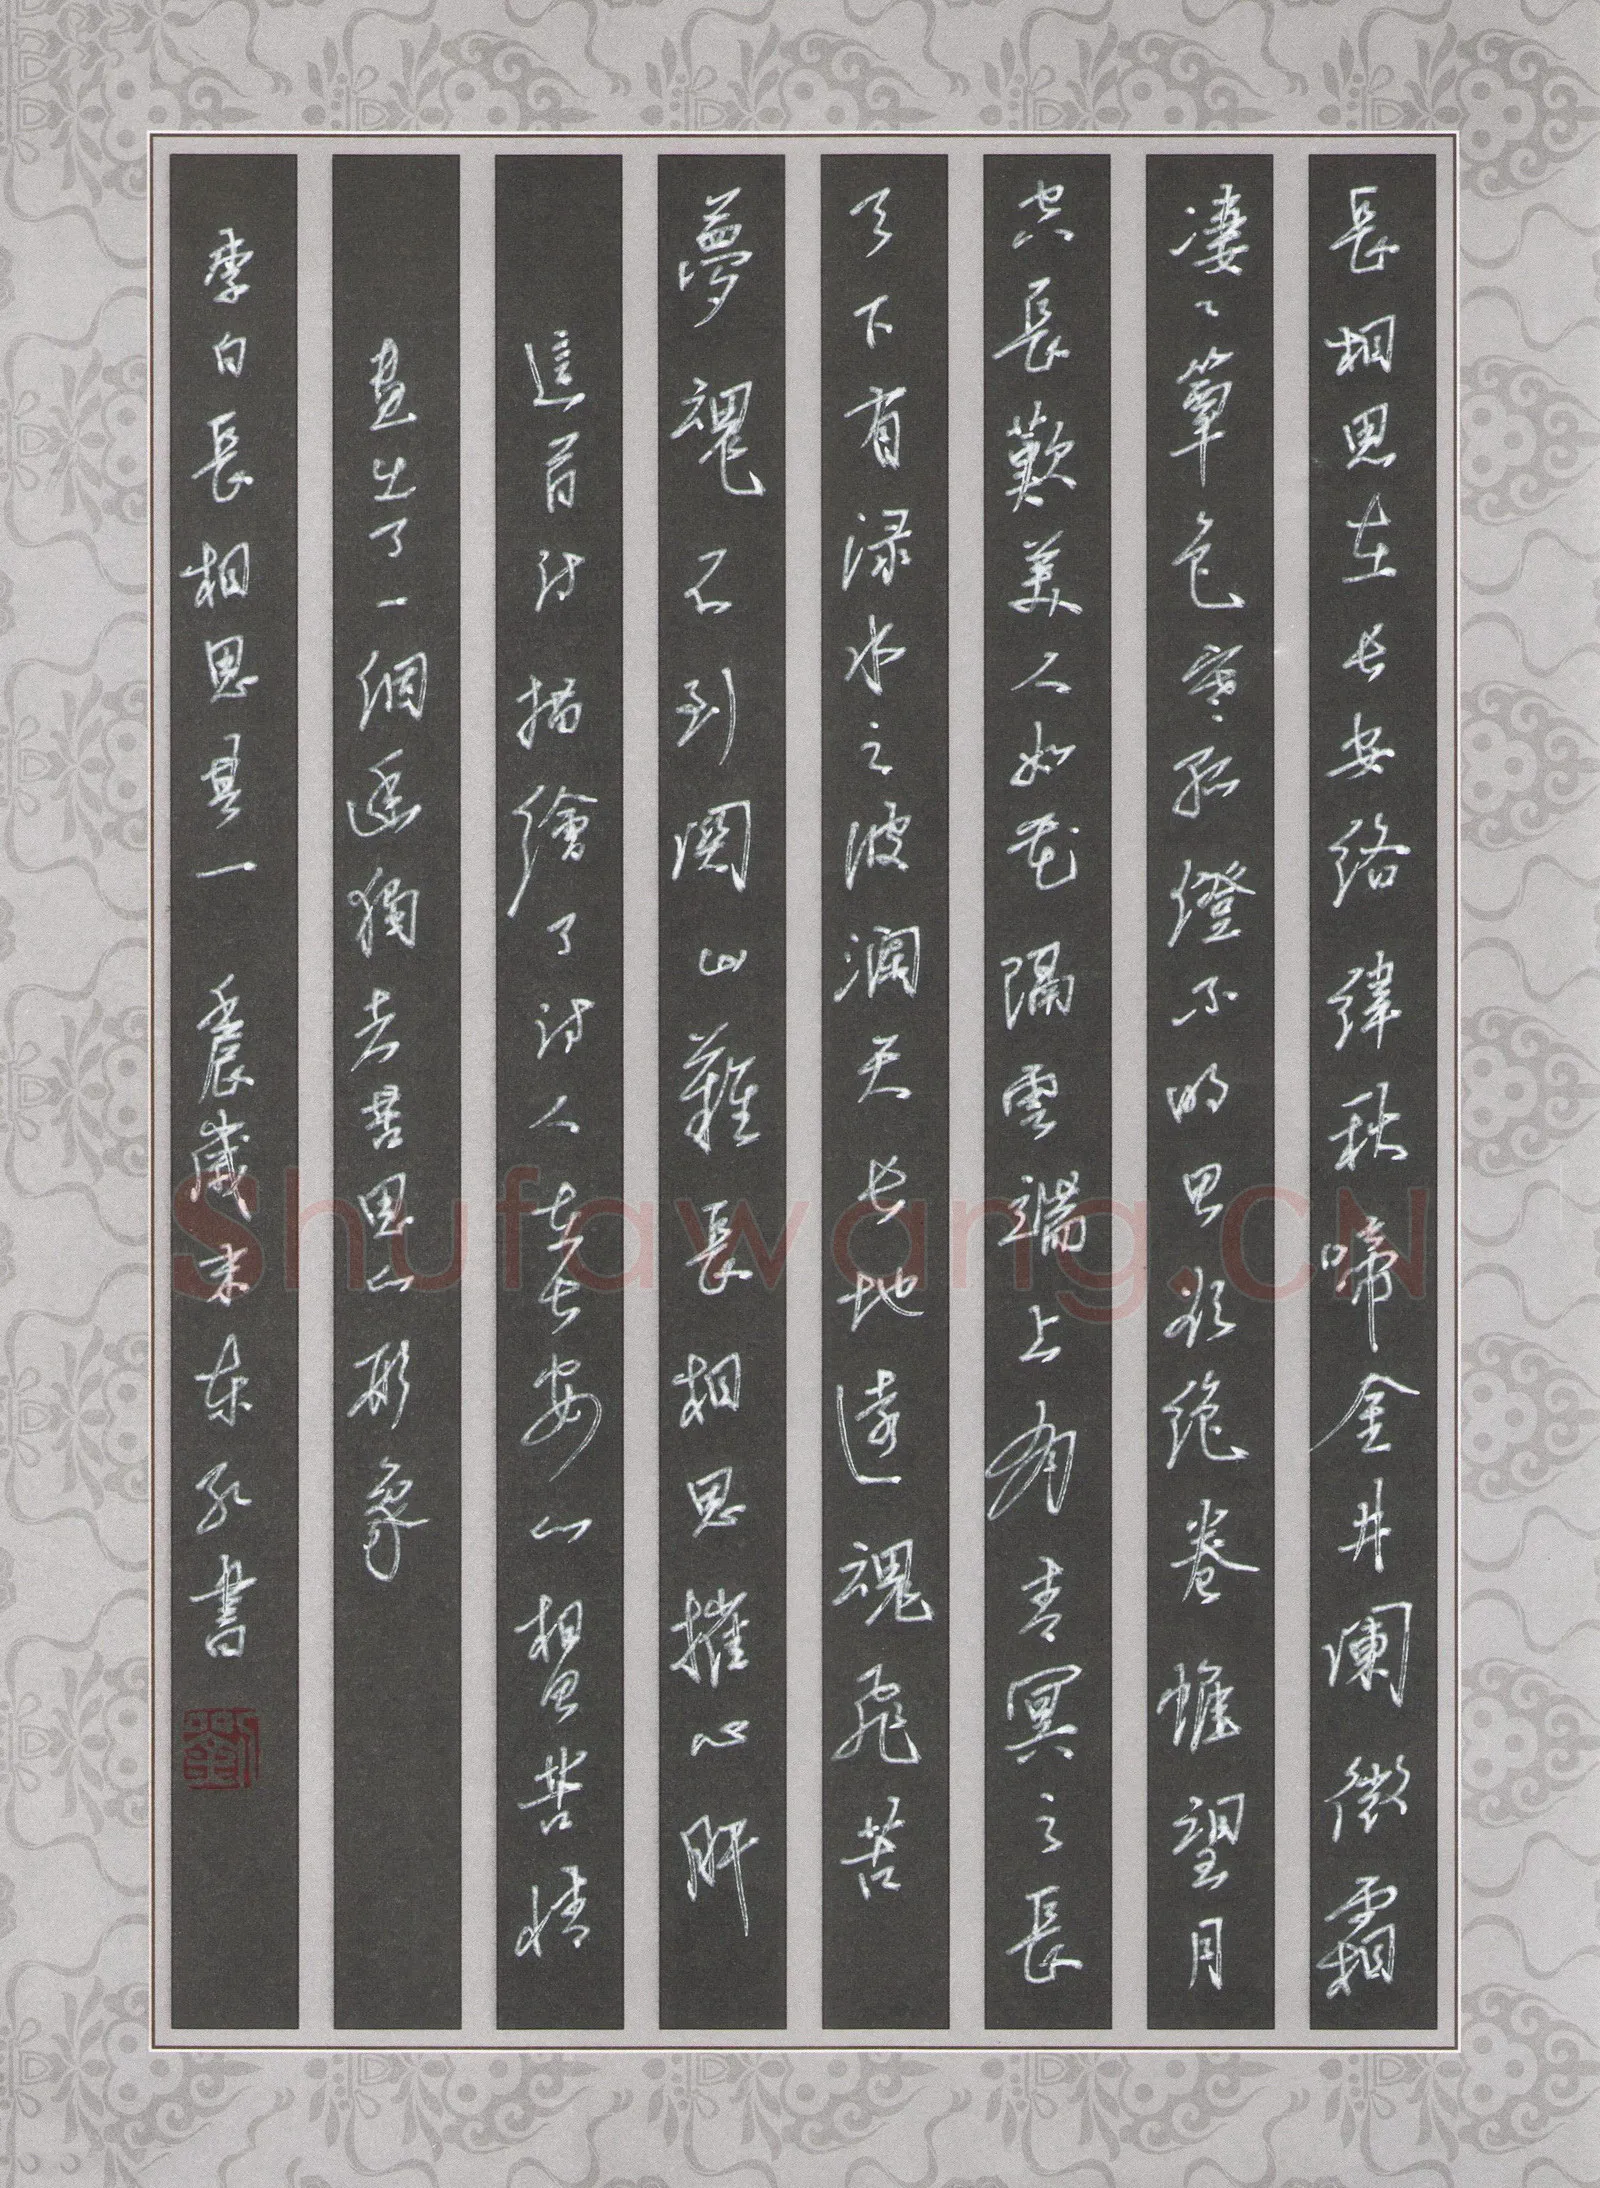 長相思在长安络緯秋啼金井阑微霜
凄〻簟色寒孤燈不明思欲绝卷帷望月
空長歎美人如花隔雲端上有青冥之長
天下有渌水之波瀾天长地遠魂飛苦
夢魂不到関山難長相思摧心肝
這首诗描繪了诗人在长安山相思苦情
画出了一個孤獨去苦思山形象
李白長相思其一 歲末東孔書
Shufawang.CN